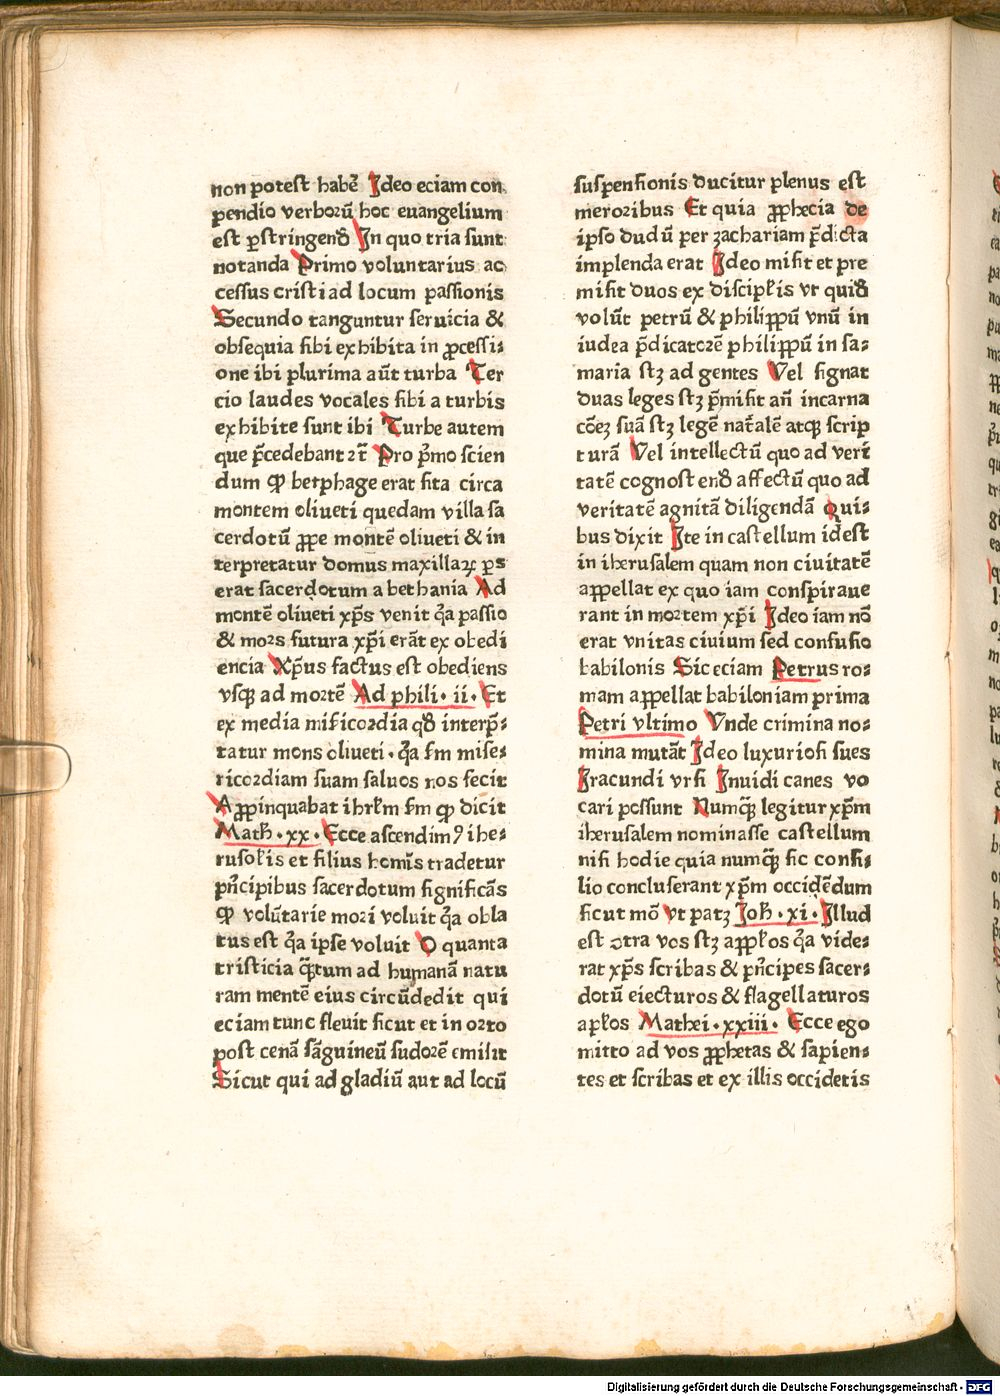 non potest habe᷒ Ideo eciam con
pendio verboꝝū hoc euangelium
est ꝑstringenď In quo tria sunt
notanda Primo voluntarius ac
cessus cristi ad locum passionis
Secundo tanguntur seruicia &
obsequia sibi exhibita in ꝓcessi⸗
one ibi plurima aūt turba Ter
cio laudes vocales sibi a turbis
exhibite sunt ibi Turbe autem
que p̄cedebant ⁊c̄ Pro pͥmo scien
dum ꝙ betphage erat sita circa
montem oliueti quedam villa sa
cerdotū ꝓpe montē oliueti & in
terpretatur domus maxillaꝝ ꝑs
erat sacerdotum a bethania Ad
montē oliueti xp̄s venit q̄a passio
& mors futura xp̄i erāt ex obedi
encia Xp̄us factus est obediens
vsqꝫ ad mortē Ad phili · ii · Et
ex media misicordia qď interp̄⸗
tatur mons oliueti · q̄a sm mise⸗
ricordiam suam saluos nos fecit
Appinquabat ihrlm̄ sm ꝙ dicit
Math̄ · xx · Ecce ascendimꝰ ihe⸗
rusoł̄is et filius homīs tradetur
pn̄cipibus sacerdotum significās
ꝙ volūtarie mori voluit q̄a obla
tus est q̄a ipse voluit O quanta
tristicia q̄̄tum ad humanā natu
ram mentē eius circūdedit qui
eciam tunc fleuit sicut et in orto
post cenā sāguineū sudorē emisit
Sicut qui ad gladiū aut ad locū
suspensionis ducitur plenus est
meroribus Et quia ꝓphecia de
ipso dudū per zachariam p̄dicta
implenda erat Ideo misit et pre
misit duos ex discipłis vt quiď
volūt petrū & philippū vnū in
iudea p̄dicatorē philippū in sa⸗
maria sꝫ ad gentes Vel signat
duas leges sꝫ p̄misit an̄ incarna
cōeꝫ suā sꝫ legē nat̄alē atqꝫ scrip
turā Vel intellectū quo ad veri
tatē cognoscenď affectū quo ad
veritatē agnitā diligendā Qui⸗
bus dixit Ite in castellum id est
in iherusalem quam non ciuitatē
appellat ex quo iam conspiraue
rant in mortem xp̄i Ideo iam nō
erat vnitas ciuium sed confusio
babilonis Sic eciam Petrus ro⸗
mam appellat babiloniam prima
Petri vltimo Vnde crimina no⸗
mina mutāt Ideo luxuriosi sues
Iracundi vrsi Inuidi canes vo
cari possunt Numqꝫ legitur xp̄m
iherusalem nominasse castellum
nisi hodie quia numqꝫ sic consi⸗
lio concluserant xp̄m occidēdum
sicut mō Vt patꝫ Joh̄ · xi · Illud
est ↄtra vos sꝫ appłos q̄a vide⸗
rat xp̄s scribas & pn̄cipes sacer⸗
dotū eiecturos & flagellaturos
apłos Mathei · xxiii · Ecce ego
mitto ad vos ꝓphetas & sapien⸗
tes et scribas et ex illis occidetis
Digitalisierung gefördert durch die Deutsche Forschungsgemeinschaft - DFG